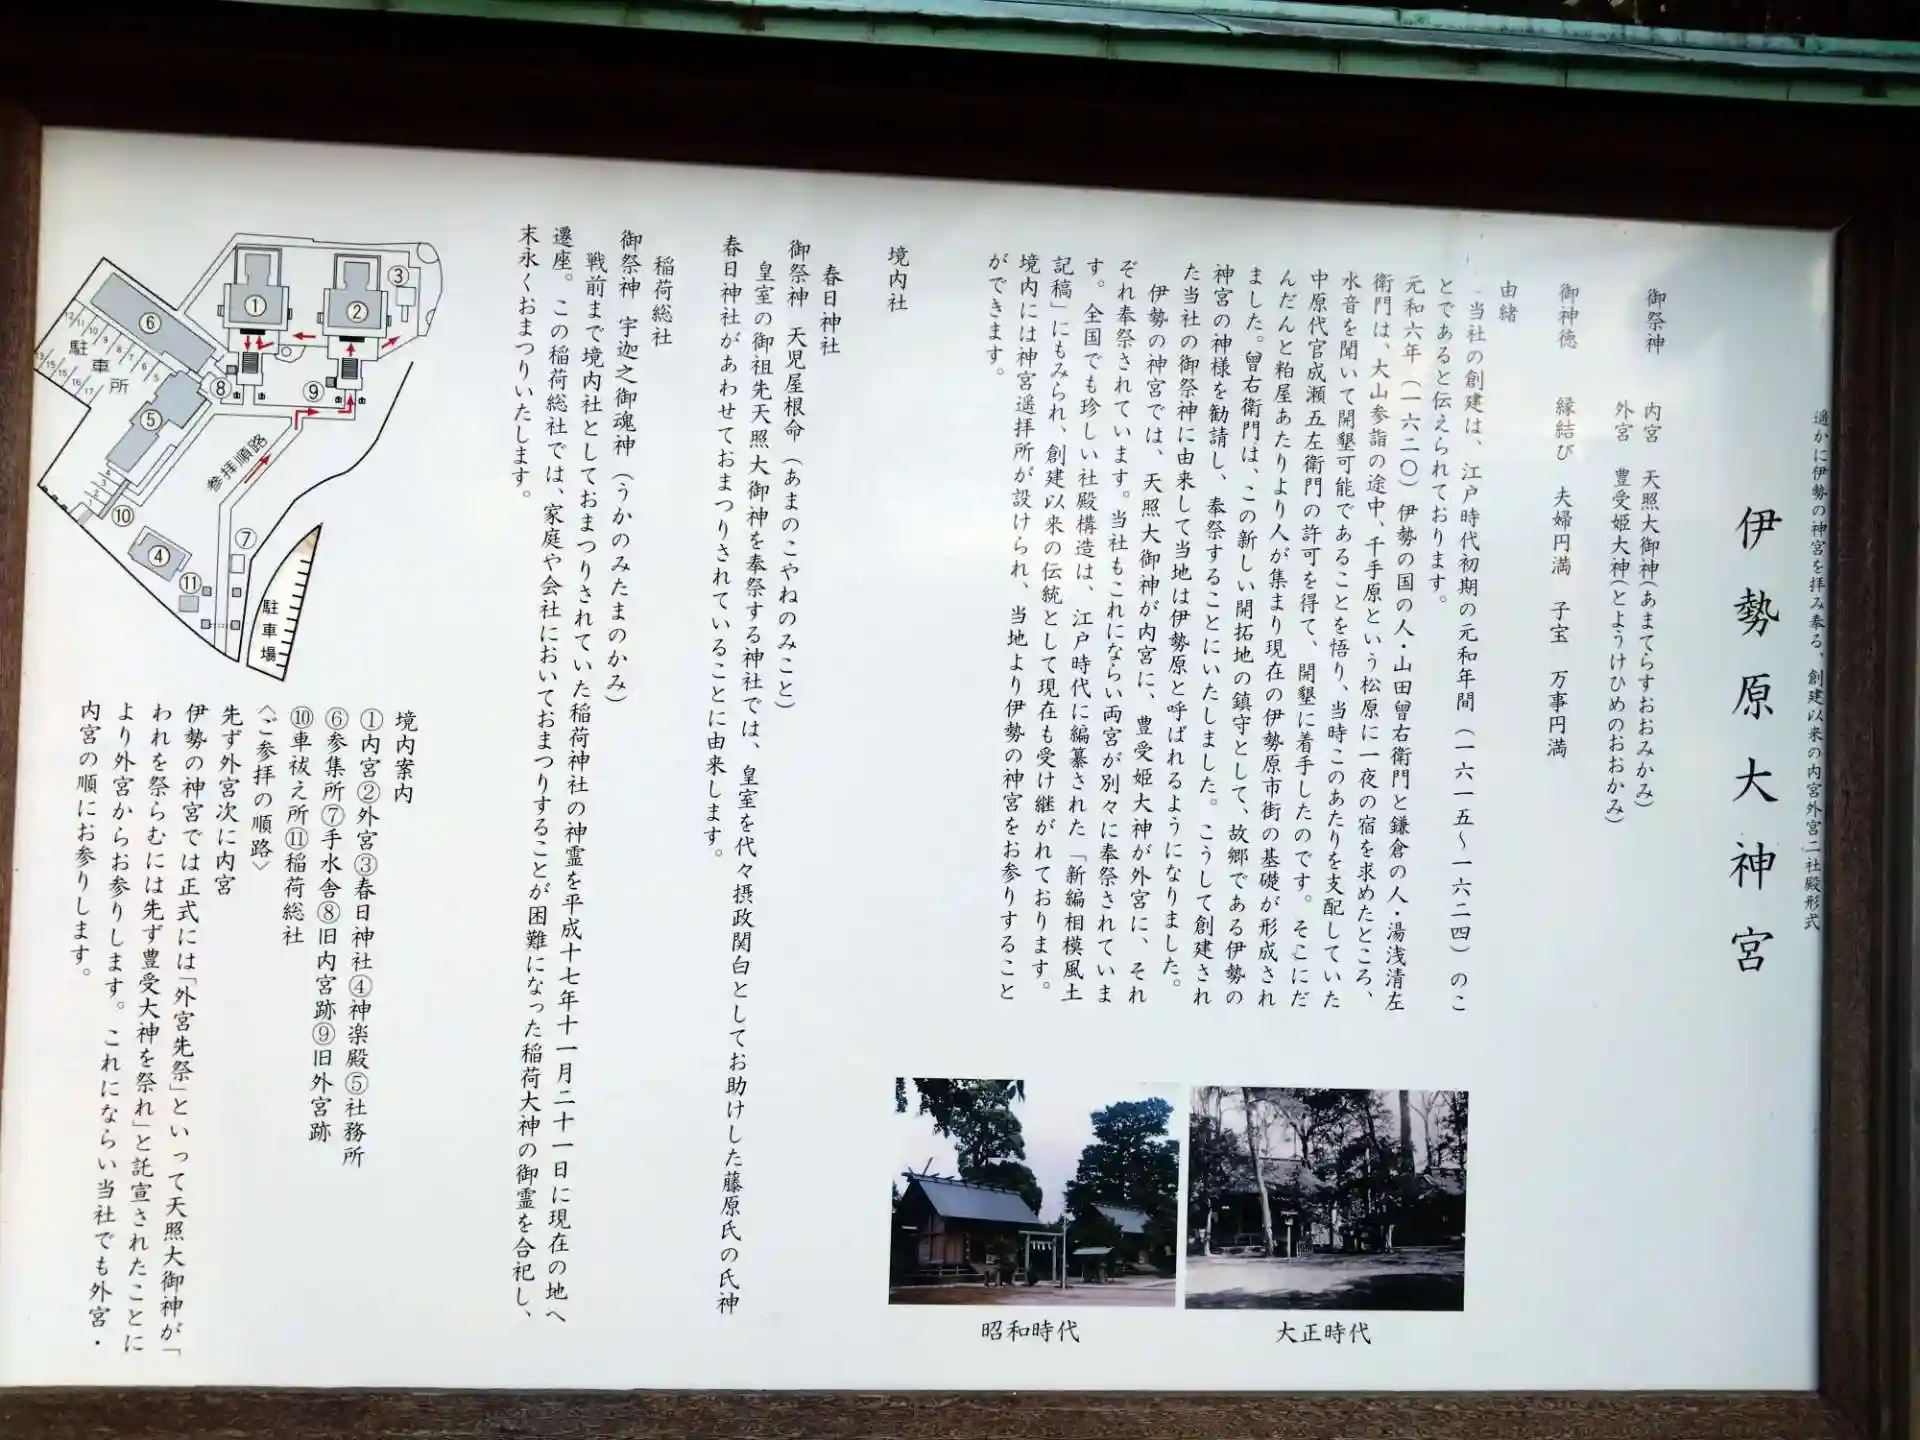 遥かに伊勢の神宮を拝み奉る、創建以来の内宮外宮二社殿形式
伊勢原大神宮
御祭神
内宮 天照大御神(あまてらすおおみかみ)
外宮 豊受姫大神(とようけひめのおおかみ)
御神徳 縁結び 夫婦円満 子宝 万事円満
由緒
当社の創建は、江戸時代初期の元和年間(一六一五〜一六二四)のこ
とであると伝えられております。
元和六年(一六二〇)伊勢の国の人・山田曾右衛門と鎌倉の人・湯浅清左
衛門は、大山参詣の途中、千手原という松原に一夜の宿を求めたところ、
水音を聞いて開墾可能であることを悟り、当時このあたりを支配していた
中原代官成瀬五左衛門の許可を得て、開墾に着手したのです。そこにだ
んだんと粕屋あたりより人が集まり現在の伊勢原市街の基礎が形成され
ました。曾右衛門は、この新しい開拓地の鎮守として、故郷である伊勢の
神宮の神様を勧請し、奉祭することにいたしました。こうして創建され
た当社の御祭神に由来して当地は伊勢原と呼ばれるようになりました。
伊勢の神宮では、天照大御神が内宮に、豊受姫大神が外宮に、それ
ぞれ奉祭されています。当社もこれにならい両宮が別々に奉祭されていま
す。全国でも珍しい社殿構造は、江戸時代に編纂された「新編相模風土
記稿」にもみられ、創建以来の伝統として現在も受け継がれております。
境内には神宮遥拝所が設けられ、当地より伊勢の神宮をお参りすること
ができます。
境内社
春日神社
御祭神 天児屋根命(あまのこやねのみこと)
皇室の御祖先天照大御神を奉祭する神社では、皇室を代々摂政関白としてお助けした藤原氏の氏神
春日神社があわせておまつりされていることに由来します。
稲荷総社
御祭神 宇迦之御魂神(うかのみたまのかみ)
戦前まで境内社としておまつりされていた稲荷神社の神霊を平成十七年十一月二十一日に現在の地へ
遷座。この稲荷総社では、家庭や会社においておまつりすることが困難になった稲荷大神の御霊を合祀し、
末永くおまつりいたします。
境内案内
①内宮②外宮③春日神社④神楽殿⑤社務所
⑥参集所⑦手水舎⑧旧内宮跡⑨旧外宮跡
⑩車祓え所⑪稲荷総社
〈ご参拝の順路〉
先ず外宮次に内宮
伊勢の神宮では正式には「外宮先祭」といって天照大御神が「
われを祭らむには先ず豊受大神を祭れ」と託宣されたことに
より外宮からお参りします。これにならい当社でも外宮・
内宮の順にお参りします。
①
②
③
⑥
駐車所
⑧
⑨
⑤
参拝順路
⑩
④
⑦
⑪
駐車場
昭和時代
大正時代